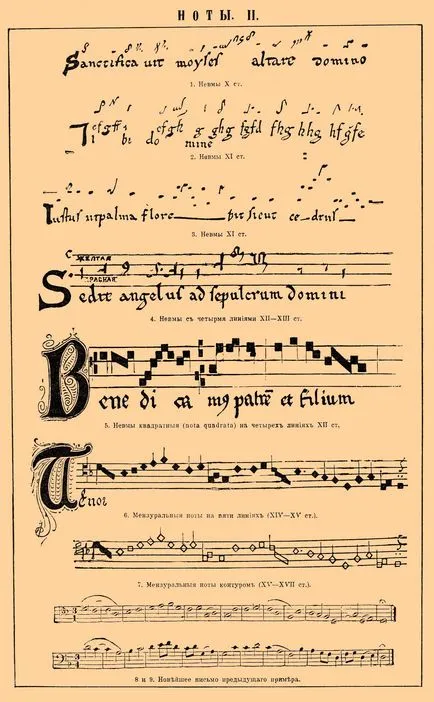 НОТЫ. II.
Sanctificavit moyses altare domino
1. Невмы X ст.
cfgff i cfgh g ghg fgfd fhg khg hfgfe
Ti bi do mine
2. Невмы XI ст.
Iustus utpalma flore bit sicut cedrus
3. Невмы XI ст.
C ЖЕЛТАЯ
КРАСНАЯ
Sedit angelus ad sepulcrum domini
4. Невмы съ четырмя линіями XII—XIII ст.
Bene di ca mꝰ patrē et filium
5. Невмы квадратныя (nota quadrata) на четырехъ линіяхъ XII ст.
Tenor
6. Мензуральныя ноты на пяти линіяхъ (XIV—XV ст.).
7. Мензуральныя ноты контуромъ (XV—XVII ст.).
8 и 9. Новѣйшее письмо предыдущаго примѣра.